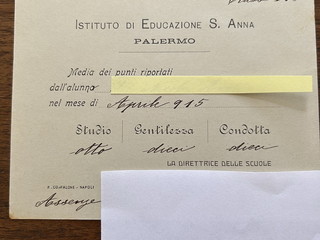 ISTITUTO DI EDUCAZIONE S. ANNA
PALERMO
Media dei punti riportati
dall'alunno
nel mese di Aprile 915
Studio Gentilezza Condotta
otto dieci dieci
LA DIRETTRICE DELLE SCUOLE
NAPOLI